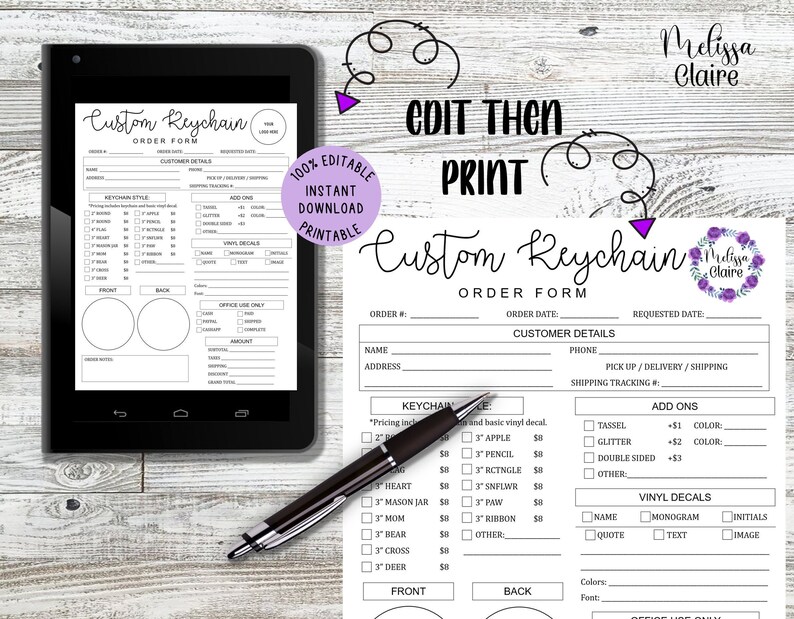 Melissa
Claire
EDIT THEN
PRINT
100% EDITABLE
INSTANT
DOWNLOAD
PRINTABLE
Custom Keychain
YOUR
LOGO HERE
ORDER FORM
ORDER #: ORDER DATE: REQUESTED DATE:
CUSTOMER DETAILS
NAME PHONE
ADDRESS PICK UP / DELIVERY / SHIPPING
SHIPPING TRACKING #:
KEYCHAIN STYLE: ADD ONS
*Pricing includes keychain and basic vinyl decal.
2" ROUND $8 3" APPLE $8
3" ROUND $8 3" PENCIL $8
4" FLAG $8 3" RCTNGLE $8
3" HEART $8 3" SNFLWR $8
3" MASON JAR $8 3" PAW $8
3" MOM $8 3" RIBBON $8
3" BEAR $8 OTHER:
3" CROSS $8
3" DEER $8
TASSEL +$1 COLOR:
GLITTER +$2 COLOR:
DOUBLE SIDED +$3
OTHER:
VINYL DECALS
NAME MONOGRAM INITIALS
QUOTE TEXT IMAGE
Colors:
Font:
FRONT BACK
OFFICE USE ONLY
CASH PAID
PAYPAL SHIPPED
CASHAPP COMPLETE
AMOUNT
SUBTOTAL
TAXES
SHIPPING
DISCOUNT
GRAND TOTAL
ORDER NOTES:
Custom Keychain
Melissa
Claire
ORDER FORM
ORDER #: ORDER DATE: REQUESTED DATE:
CUSTOMER DETAILS
NAME PHONE
ADDRESS PICK UP / DELIVERY / SHIPPING
SHIPPING TRACKING #:
KEYCHAIN LE: ADD ONS
*Pricing inclu in and basic vinyl decal.
2" R $8 3" APPLE $8
$8 3" PENCIL $8
LAG $8 3" RCTNGLE $8
3" HEART $8 3" SNFLWR $8
3" MASON JAR $8 3" PAW $8
3" MOM $8 3" RIBBON $8
3" BEAR $8 OTHER:
3" CROSS $8
3" DEER $8
TASSEL +$1 COLOR:
GLITTER +$2 COLOR:
DOUBLE SIDED +$3
OTHER:
VINYL DECALS
NAME MONOGRAM INITIALS
QUOTE TEXT IMAGE
Colors:
Font:
FRONT BACK
OFFICE USE ONLY